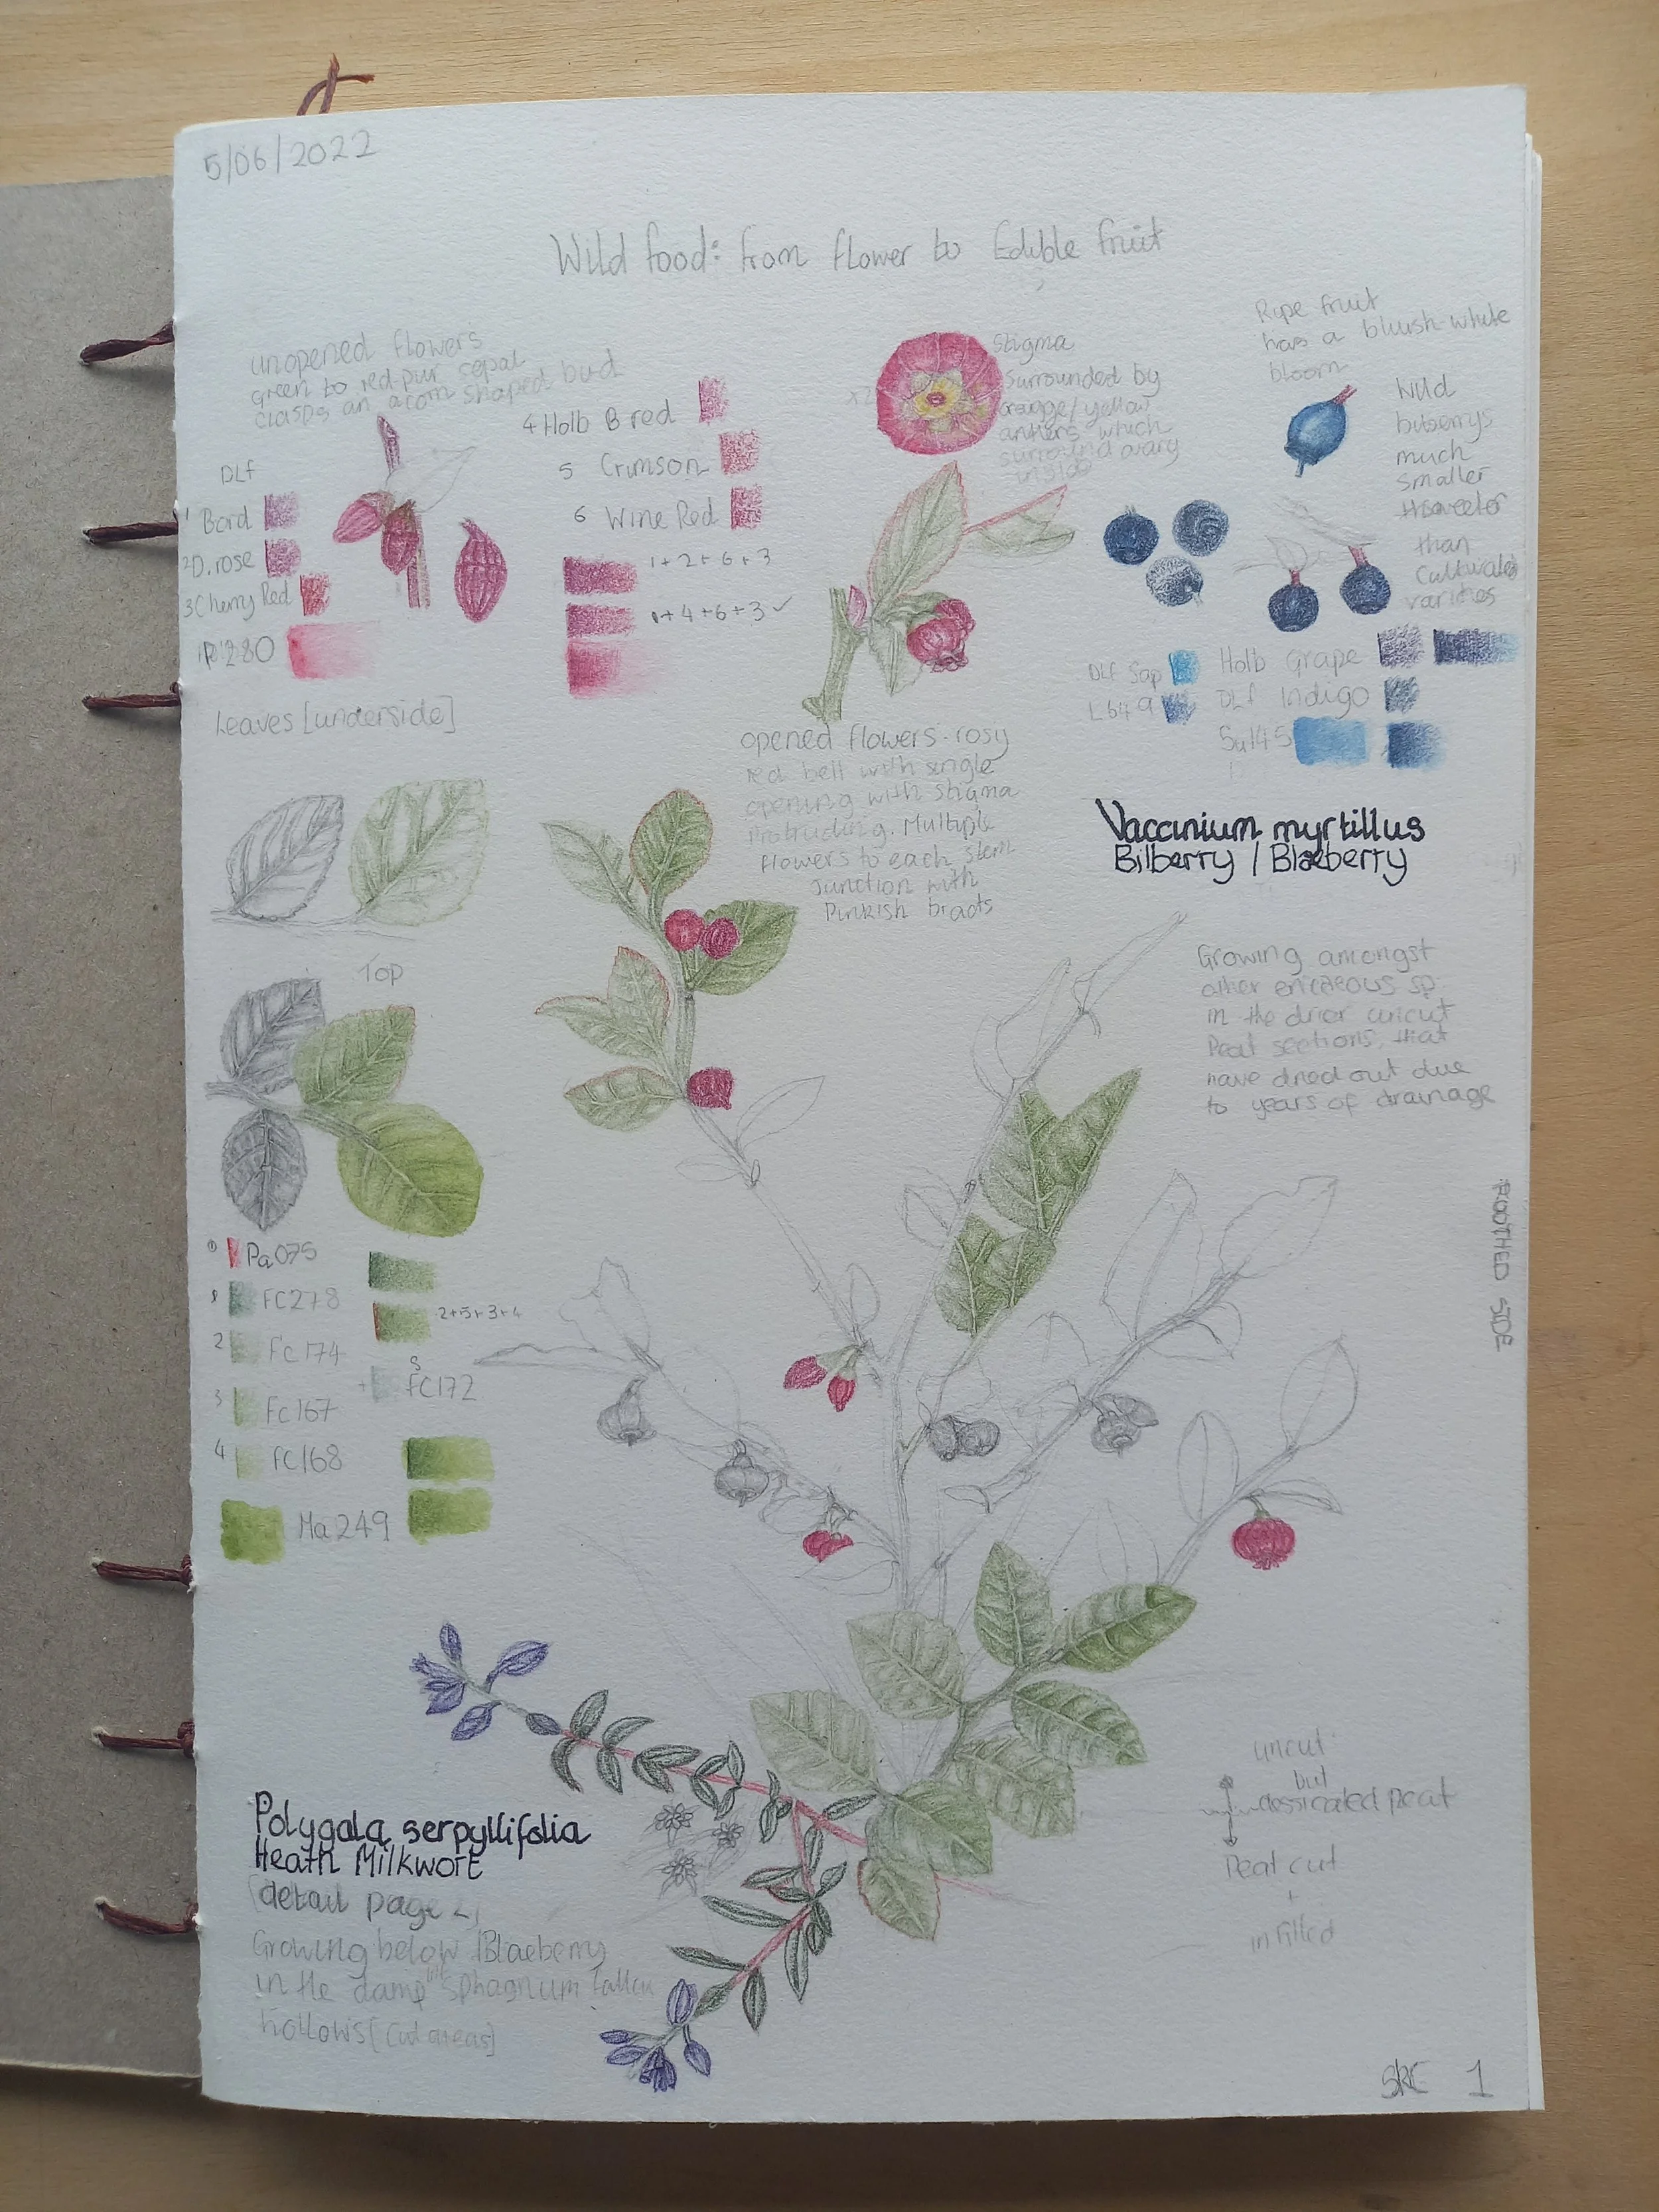 5/06/2022
Wild food: from flower to Edible fruit
unopened flowers
green to red-pur sepal
clasps an acorn shaped bud
DLf
1 Bord
2D.rose
3Cherry Red
280
4 Holb B red
5 Crimson
6 Wine Red
1+2+6+3
1+4+6+3 ✓
x2
Stigma
Surrounded by
orange/yellow
anthers which
surround ovary
inside
Ripe fruit
has a bluish-white
bloom
Wild
much
smaller
than
varities
DLf Sap
L649
Holb Grape
DLf Indigo
Su145
Leaves [underside]
opened flowers-rosy
red bell with single
opening with stigma
protruding. Multiple
flowers to each stem
Junction with
Pinkish bracts
Vaccinium myrtillus
Bilberry / Blaeberry
Top
Growing amongst
other ericaeous sp.
in the drier uncut
Peat sections, that
have dried out due
to years of drainage
TOOTHED SIDE
Pa075
1 FC278
2 FC174
3 FC167
4 FC168
Ma249
2+5+3+4
5
+ FC172
Polygala serpyllifolia
Heath Milkwort
[detail page 4]
Growing below Blaeberry
in the damp sphagnum
hollows [Cut areas]
uncut
but
dessicated peat
Peat cut
+
infilled
SRE 1